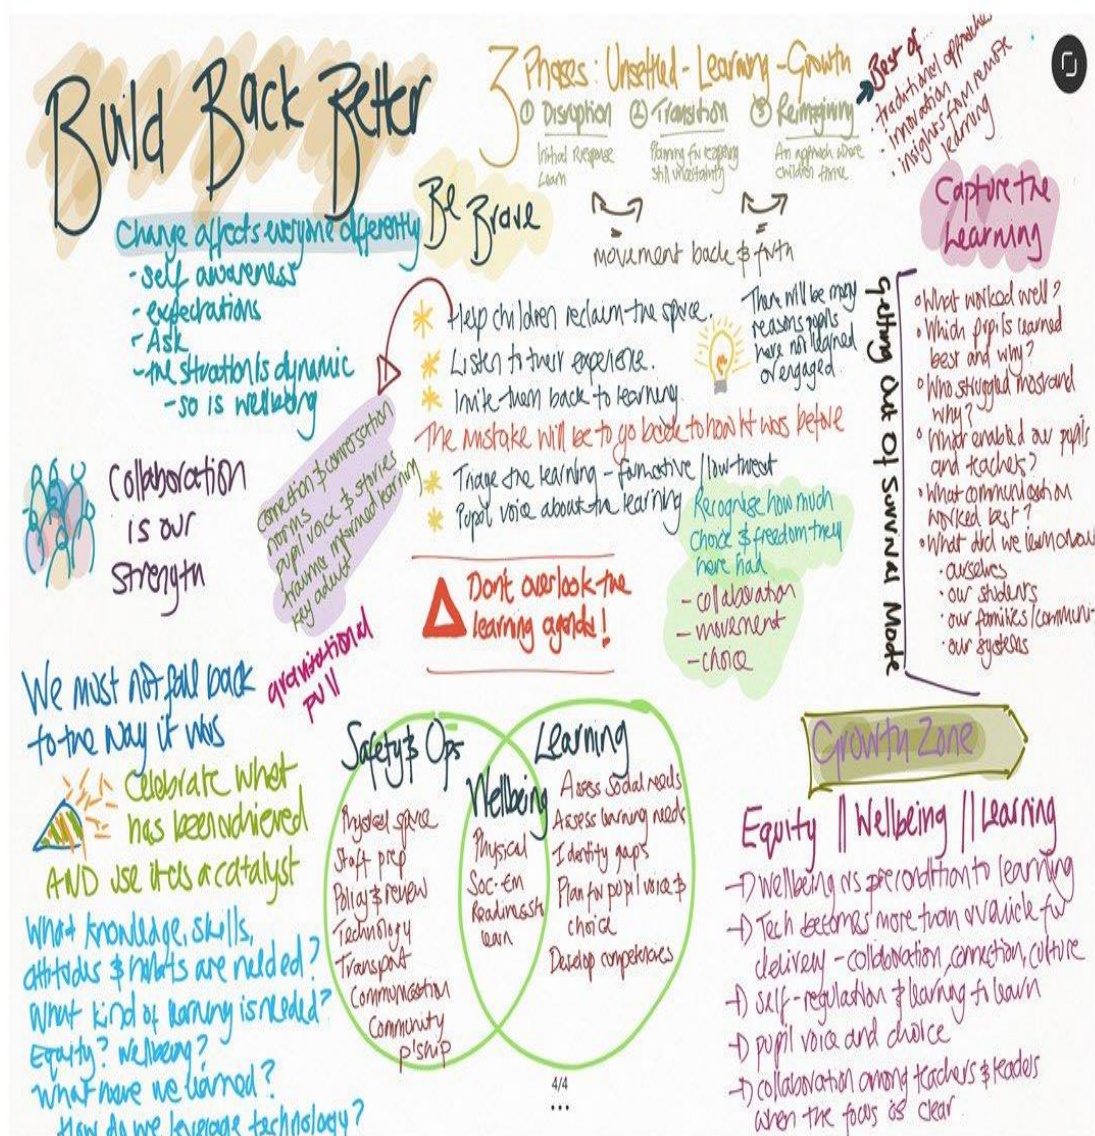 Build Back Better
3 Phases: Unsettled - Learning - Growth
① Disruption
Initial Response
Learn
② Transition
Planning for reopening
still uncertainty
③ Reimagining
An approach where
children thrive
movement back & forth
Best of...
· traditional approaches
· innovation
· insights from remote
learning
Change affects everyone differently
- self awareness
- expectations
- Ask
- the situation is dynamic
- so is wellbeing
Be
Brave
Help children reclaim the space.
Listen to their experience.
Invite them back to learning.
The mistake will be to go back to how it was before
Triage the learning - formative / low threat
Pupil voice about the learning
There will be many
reasons pupils
have not learned
or engaged
Connection & conversation
norms
pupil voice & stories
trauma informed learning
key adult
Collaboration
is our
Strength
Don't overlook the
learning agenda!
Recognise how much
choice & freedom they
have had
- collaboration
- movement
- choice
Capture the
Learning
Getting Out Of Survival Mode
What worked well?
Which pupils learned
best and why?
Who struggled most and
why?
What enabled our pupils
and teachers?
What communication
worked best?
What did we learn about
· ourselves
· our students
· our families/communit
· our systems
We must not fall back
to the way it was
gravitational
pull
Celebrate what
has been achieved
AND use it as a catalyst
What knowledge, skills,
attitudes & habits are needed?
What kind of learning is needed?
Equity? Wellbeing?
What have we learned?
How do we leverage technology?
Safety & Ops
Physical space
Staff prep
Policy & review
Technology
Transport
Communication
Community
p'ship
Wellbeing
Physical
Soc-Em
Readiness to
learn
Learning
Assess social needs
Assess learning needs
Identify gaps
Plan for pupil voice &
choice
Develop competencies
4/4
Growth Zone
Equity || Wellbeing || Learning
→ Wellbeing as precondition to learning
→ Tech becomes more than a vehicle for
delivery - collaboration, connection, culture
→ self-regulation & learning to learn
→ pupil voice and choice
→ collaboration among teachers & leaders
when the focus is clear.